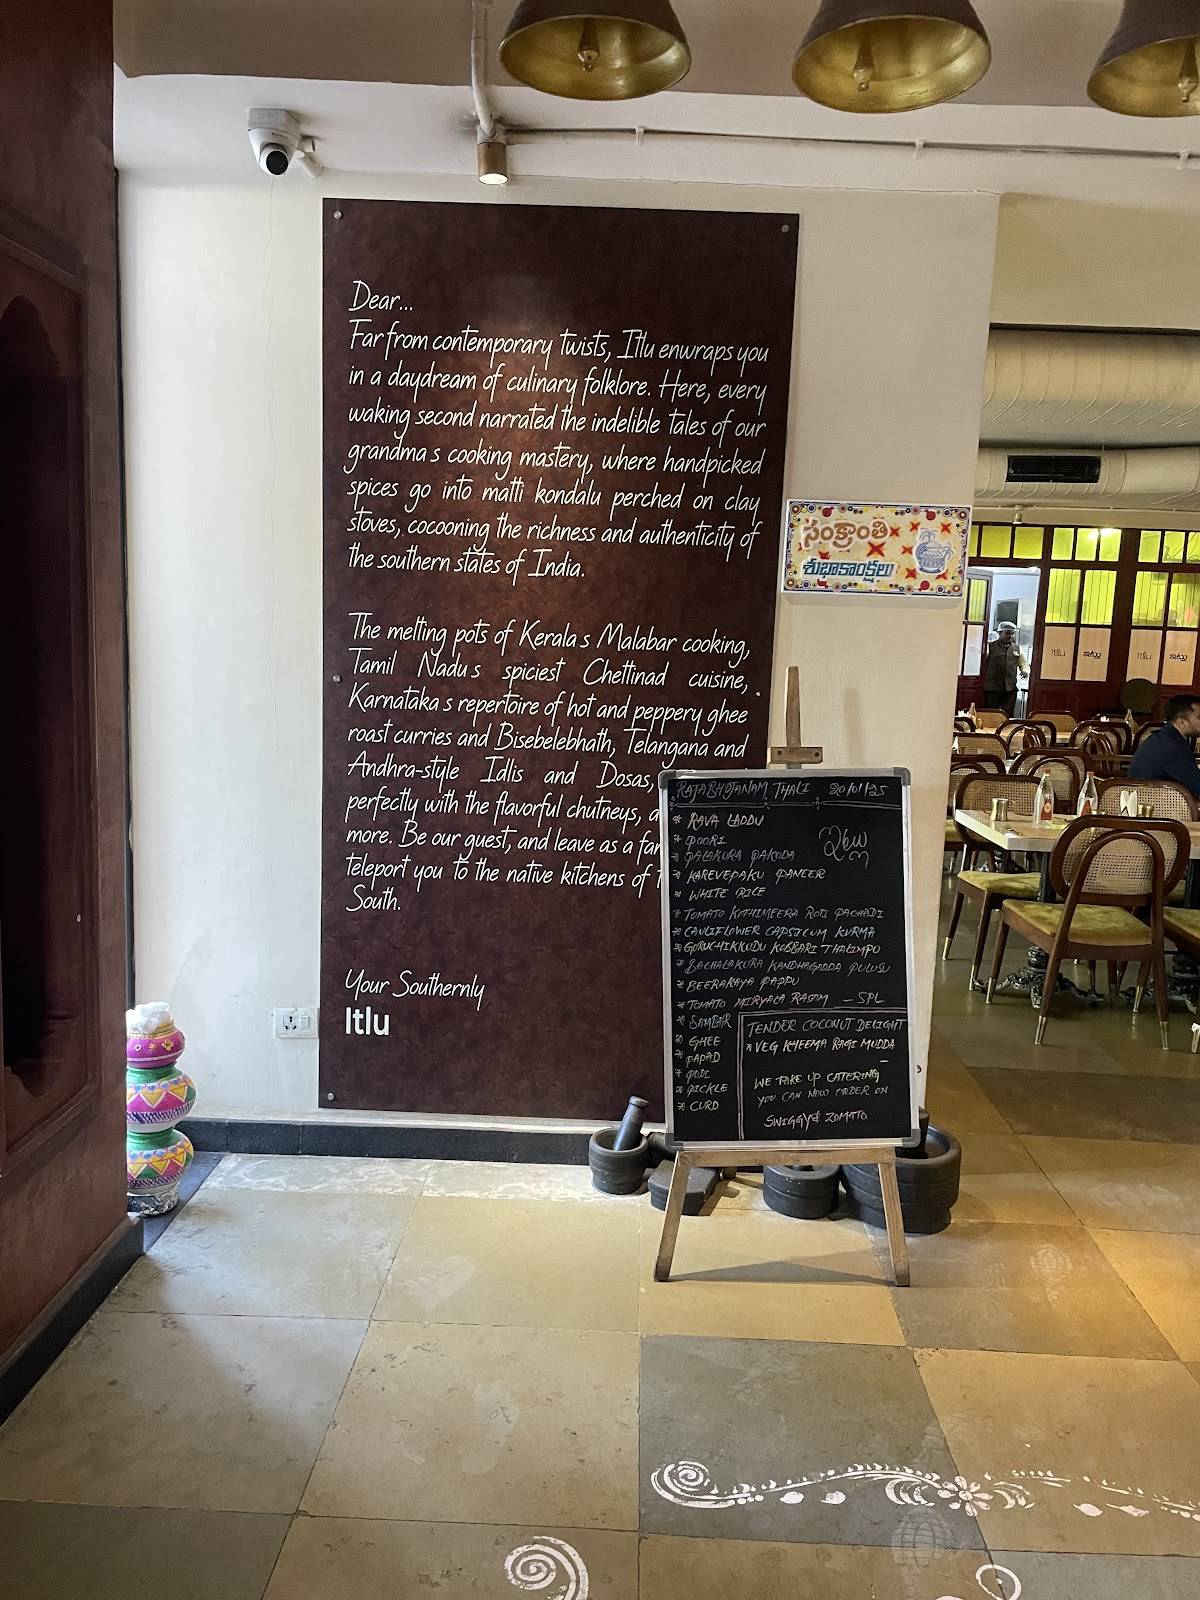 Dear...
Far from contemporary twists, Itlu enwraps you
in a daydream of culinary folklore. Here, every
waking second narrated the indelible tales of our
grandma s cooking mastery, where handpicked
spices go into matti kondalu perched on clay
stoves, cocooning the richness and authenticity of
the southern states of India.
The melting pots of Kerala s Malabar cooking,
Tamil Nadu s spiciest Chettinad cuisine,
Karnataka s repertoire of hot and peppery ghee
roast curries and Bisebelebhath, Telangana and
Andhra-style Idlis and Dosas,
perfectly with the flavorful chutneys, a
more. Be our guest, and leave as a fa
teleport you to the native kitchens of
South.
Your Southernly
Itlu
సంక్రాంతి
శుభాకాంక్షలు
RAJABHOJANAM THALI 20/01/25
* RAVA LADDU
* POORI
* PALAKURA PAKODA
* KAREVEPAKU PANEER
* WHITE RICE
* TOMATO KOTHIMEERA ROTI PACHADI
* CAULIFLOWER CAPSICUM KURMA
* GORUCHIKKUDU KOBBARI THALIMPU
* BACHALAKURA KANDHAGADDA PULUSU
* BEERAKAYA PAPPU
* TOMATO MIRYALA RASAM - SPL
* SAMBAR
* GHEE
* PAPAD
* PODI
* PICKLE
* CURD
TENDER COCONUT DELIGHT
* VEG KHEEMA RAGI MUDDA
WE TAKE UP CATERING
YOU CAN NOW ORDER ON
SWIGGY & ZOMATO
Itlu
ఇట్లు
Itlu
ఇట్లు